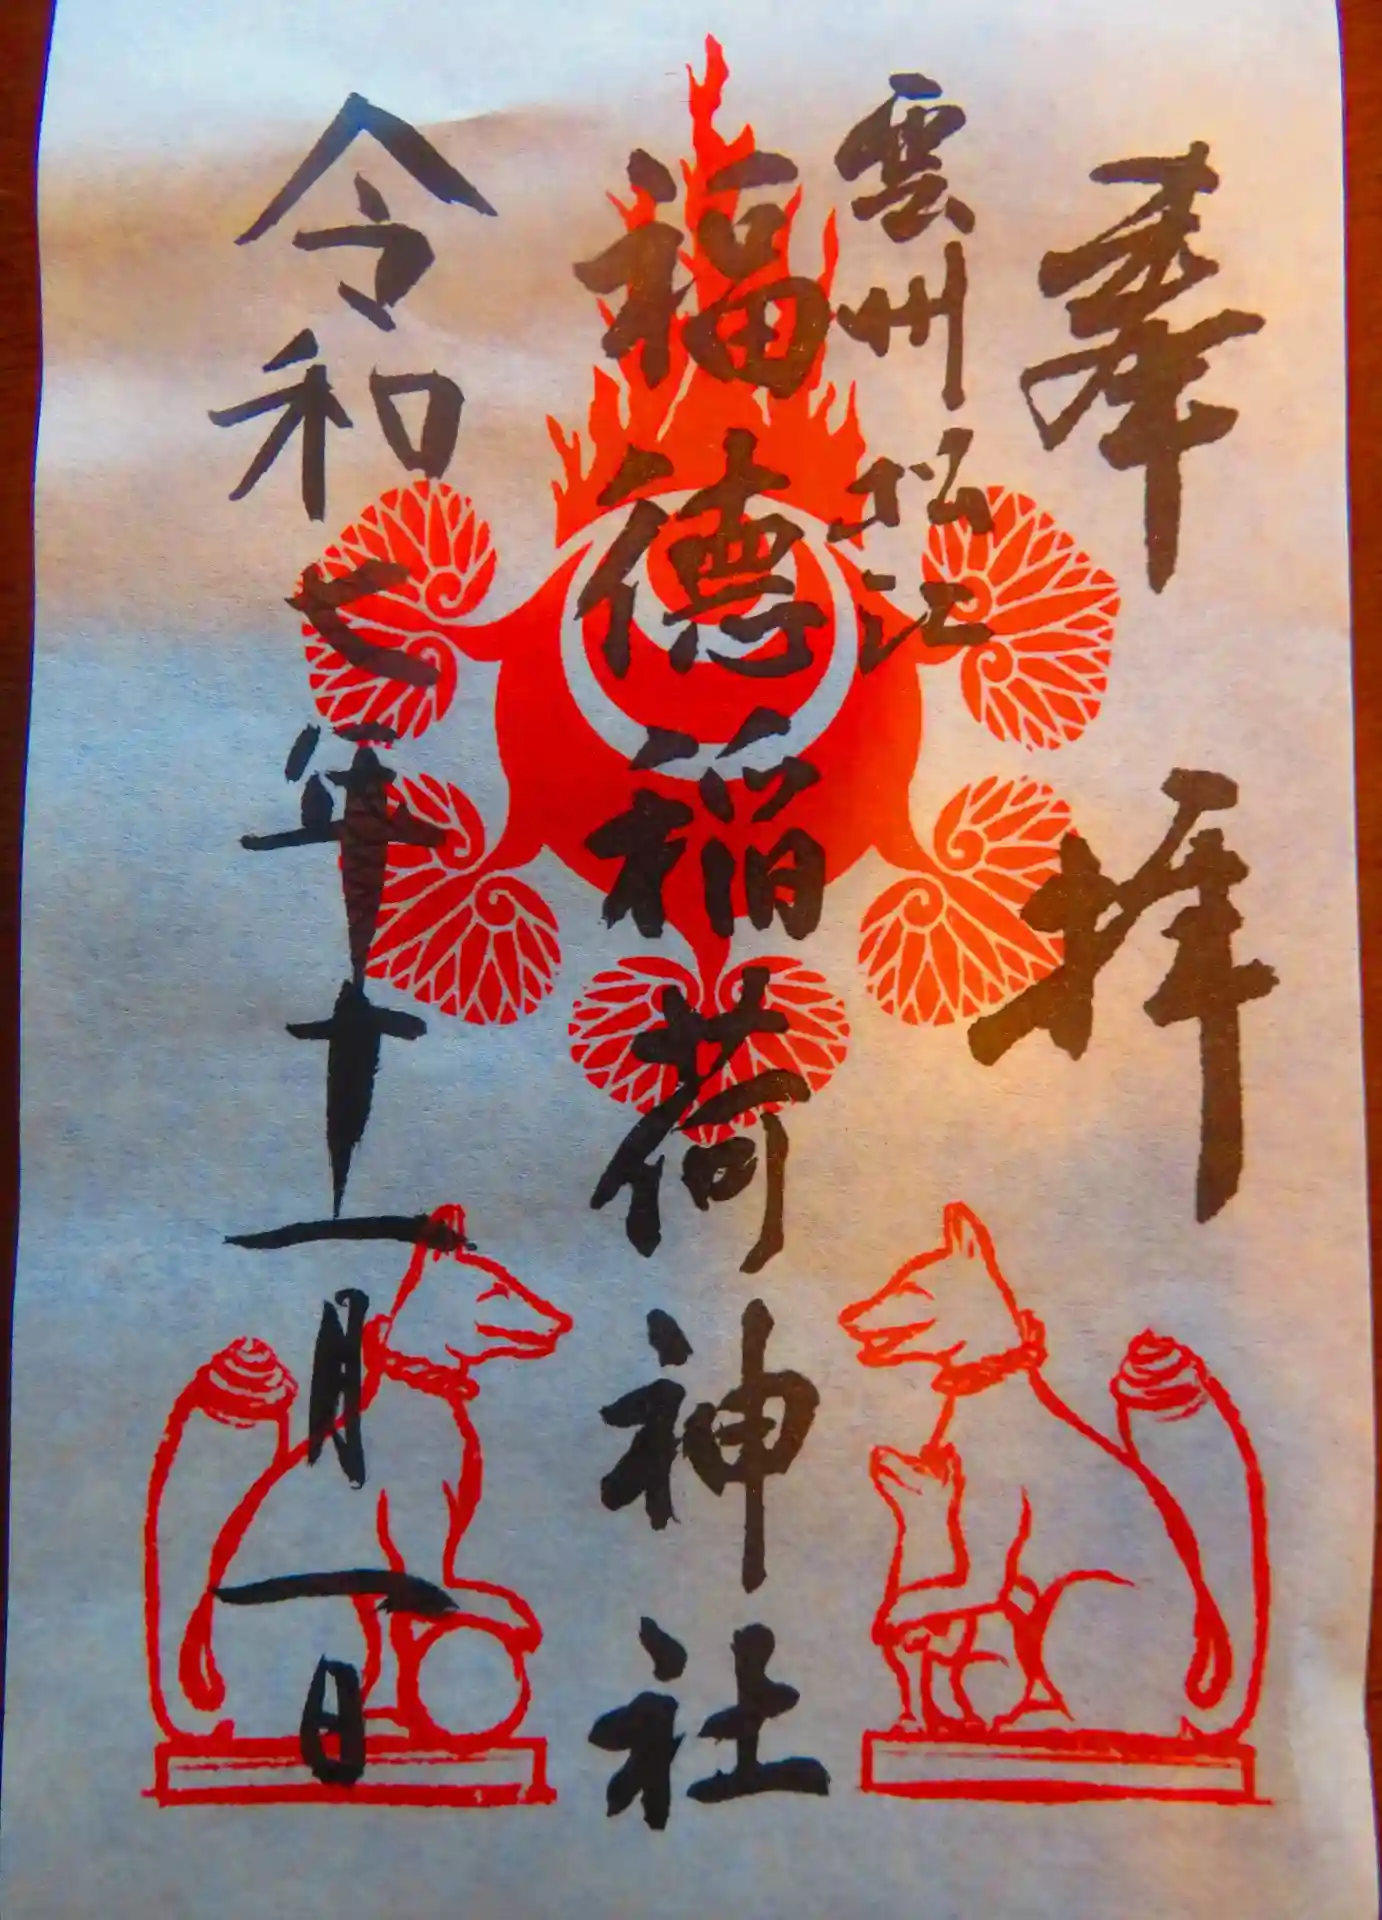 奉拝
雲州松江
福徳稲荷神社
令和七年十一月一日